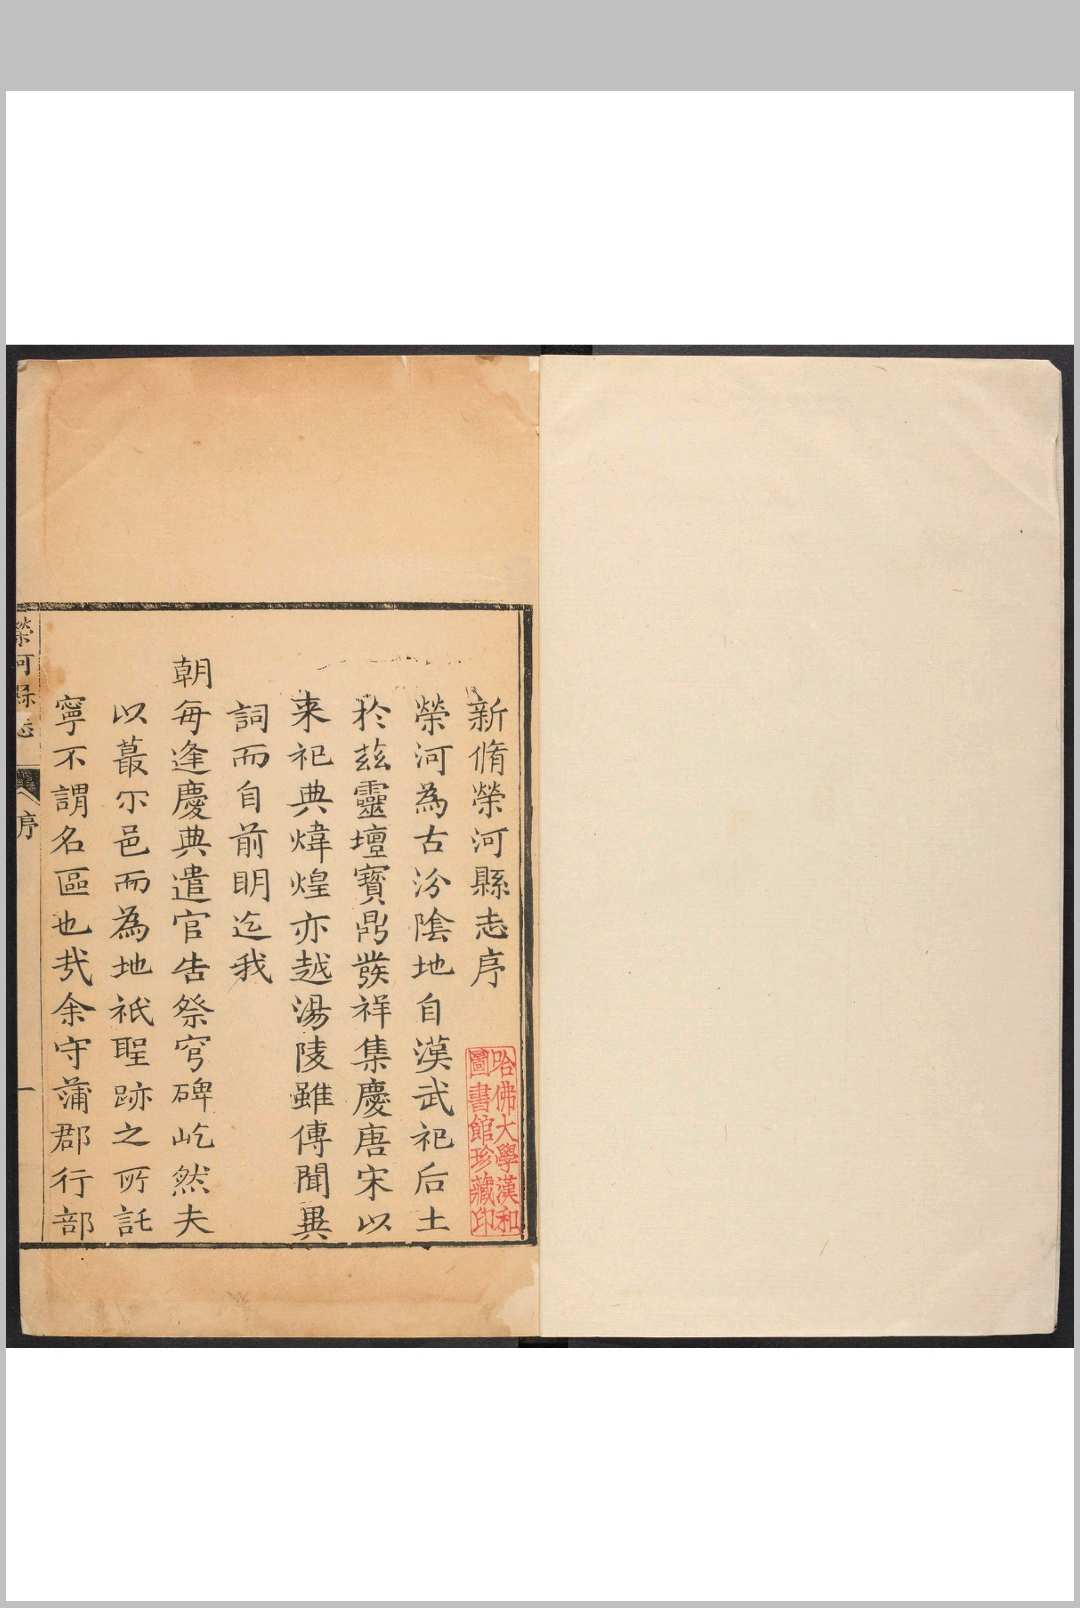 新脩榮河縣志序
榮河為古汾陰地自漢武祀后土
扵茲靈壇寶鼎發祥集慶唐宋以
来祀典煒煌亦越湯陵雖傳聞異
詞而自前明迄我
朝每逢慶典遣官告祭穹碑屹然夫
以蕞尔邑而為地祇聖跡之所託
寧不謂名區也㢤余守蒲郡行部
榮河縣志
序
一
哈佛大學漢和
圖書館珍藏印